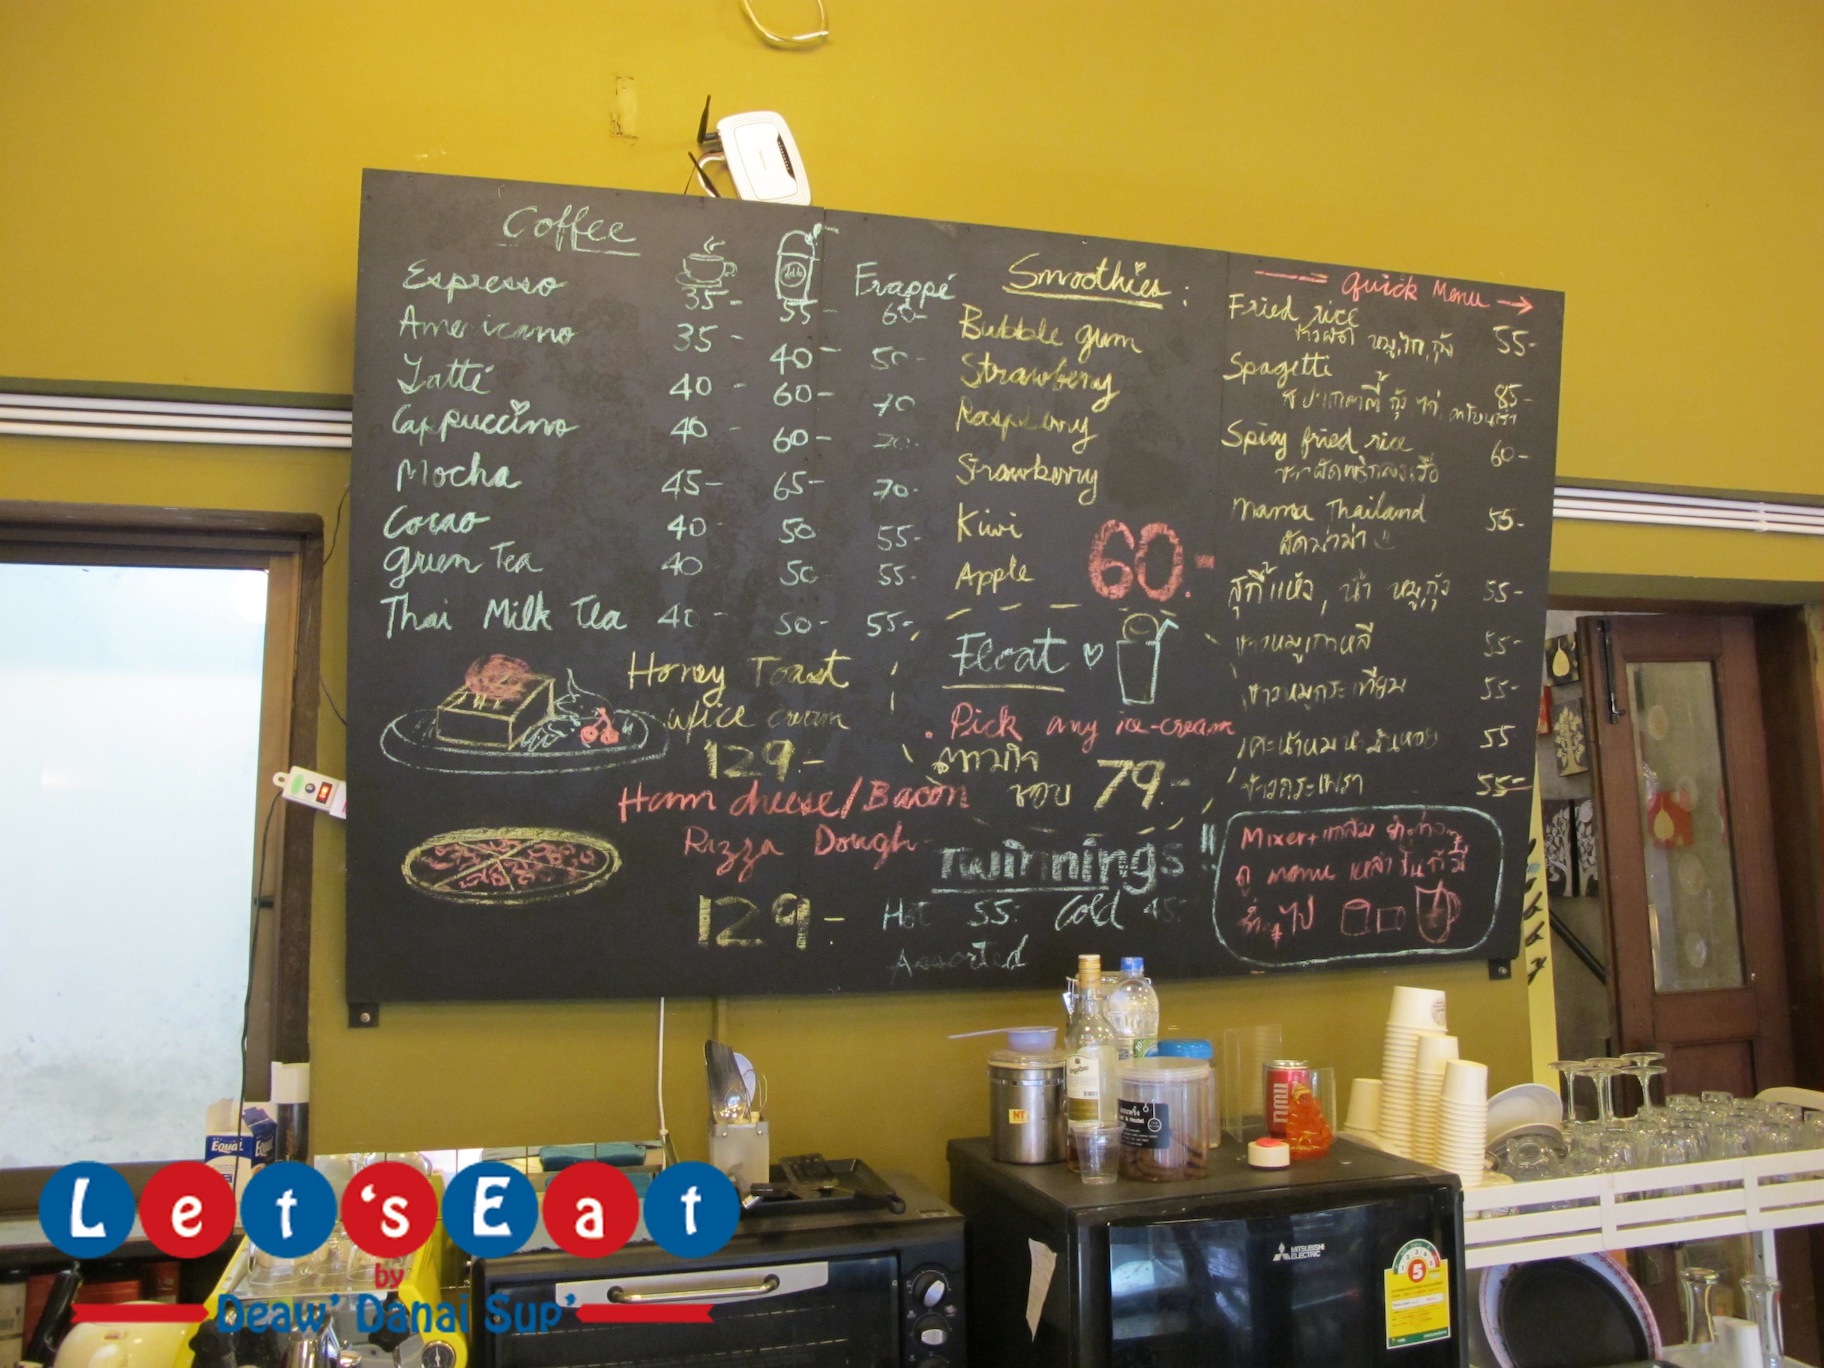 Coffee
Frappé
Espresso 35- 55- 60-
Americano 35- 40- 50-
Latté 40- 60- 70
Cappuccino 40- 60- 70-
Mocha 45- 65- 70-
Cocao 40- 50 55-
green Tea 40 50 55-
Thai Milk Tea 40- 50- 55-
Honey Toast
w/ice cream
129.-
Ham cheese/Bacon
Pizza Dough
129-
Smoothies:
Bubble gum
Strawberry
Raspberry
Strawberry
Kiwi
Apple
60.-
Float
Pick any ice-cream
ตามใจ
ชอบ 79.-
Twinnings
Hot 55- Cold 45-
Assorted
Quick Menu
Fried rice
ข้าวผัด หมู,ไก่,กุ้ง 55-
Spagetti 85-
สปาเกตตี้ กุ้ง ไก่,
Spicy fried rice 60-
ข้าวผัดพริกแกงเรือ
Mama Thailand 55-
ผัดมาม่า
สุกี้แห้ง, น้ำ หมู,กุ้ง 55-
ข้าวหมูเกาหลี 55-
ข้าวหมูกระเทียม 55-
คะน้าหมูน้ำมันหอย 55
ข้าวกระเพรา 55-
Mixer+
ดู menu
Equal
NT
MITSUBISHI
ELECTRIC
5
Let'sEat
by
Deaw' Danai Sup'